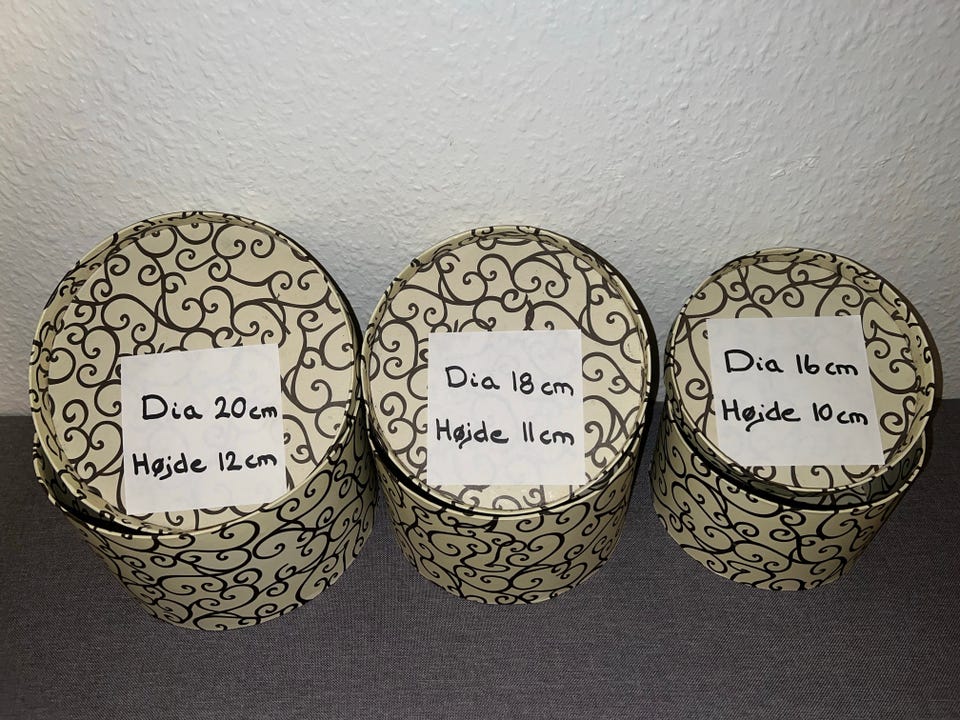 Dia 20cm
Højde 12cm
Dia 18cm
Højde 11cm
Dia 16cm
Højde 10cm